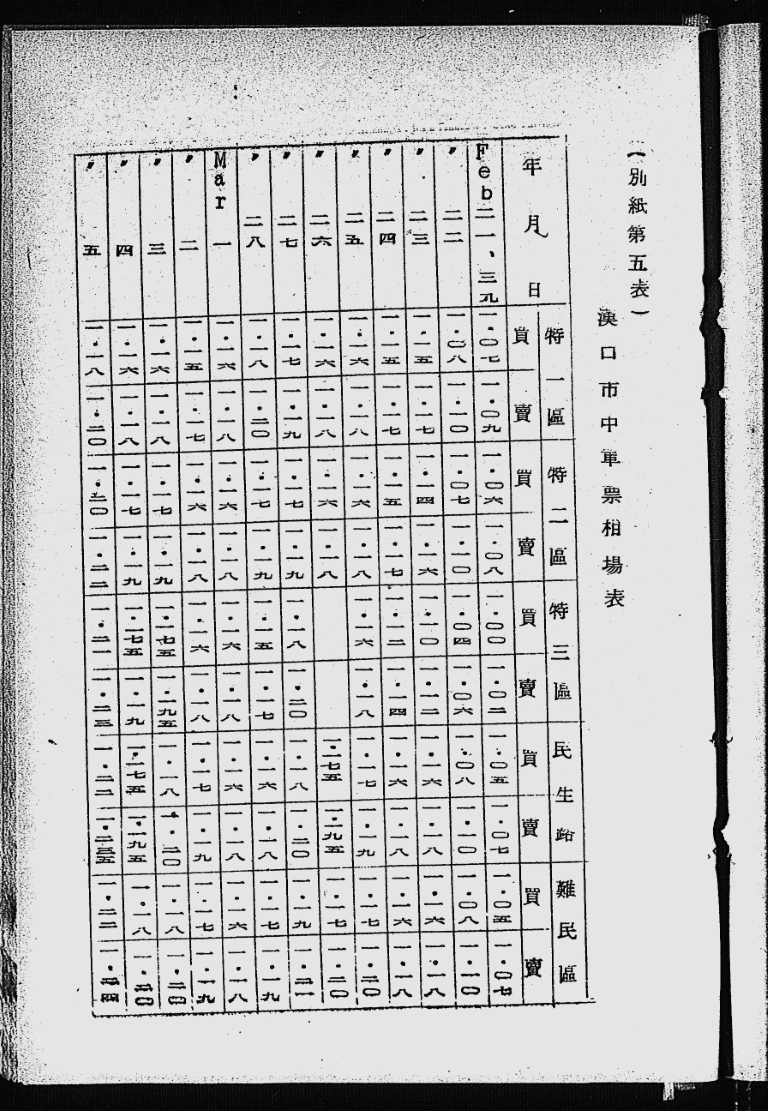 (別紙第五表)
漢口市中軍票相場表
年月日 特一區 特二區 特三區 民生路 難民區
買 賣 買 賣 買 賣 買 賣 買 賣
Feb 二一、三九 一・〇七 一・〇九 一・〇六 一・〇八 一・〇〇 一・〇二 一・〇五 一・〇七 一・〇五 一・〇七
〃 二二 一・〇八 一・一〇 一・〇七 一・一〇 一・〇四 一・〇六 一・〇八 一・一〇 一・〇八 一・一〇
〃 二三 一・一五 一・一七 一・一四 一・一六 一・一〇 一・一二 一・一六 一・一八 一・一六 一・一八
〃 二四 一・一五 一・一七 一・一五 一・一七 一・一二 一・一四 一・一六 一・一八 一・一六 一・一八
〃 二五 一・一六 一・一八 一・一六 一・一八 一・一六 一・一八 一・一七 一・一九 一・一七 一・二〇
〃 二六 一・一六 一・一八 一・一六 一・一八 一・一七五 一・一九五 一・一七 一・二〇
〃 二七 一・一七 一・一九 一・一七 一・一九 一・一八 一・二〇 一・一八 一・二〇 一・一九 一・二一
〃 二八 一・一八 一・二〇 一・一七 一・一九 一・一五 一・一七 一・一六 一・一八 一・一七 一・一九
Mar 一 一・一六 一・一八 一・一六 一・一八 一・一六 一・一八 一・一六 一・一八 一・一六 一・一八
〃 二 一・一五 一・一七 一・一六 一・一八 一・一六 一・一八 一・一七 一・一九 一・一七 一・一九
〃 三 一・一六 一・一八 一・一七 一・一九 一・一七五 一・一九五 一・一八 一・二〇 一・一八 一・二〇
〃 四 一・一六 一・一八 一・一七 一・一九 一・一七五 一・一九 一・一七五 一・一九五 一・一八 一・二〇
〃 五 一・一八 一・二〇 一・二〇 一・二二 一・二一 一・二三 一・二二 一・二三五 一・二二 一・二四